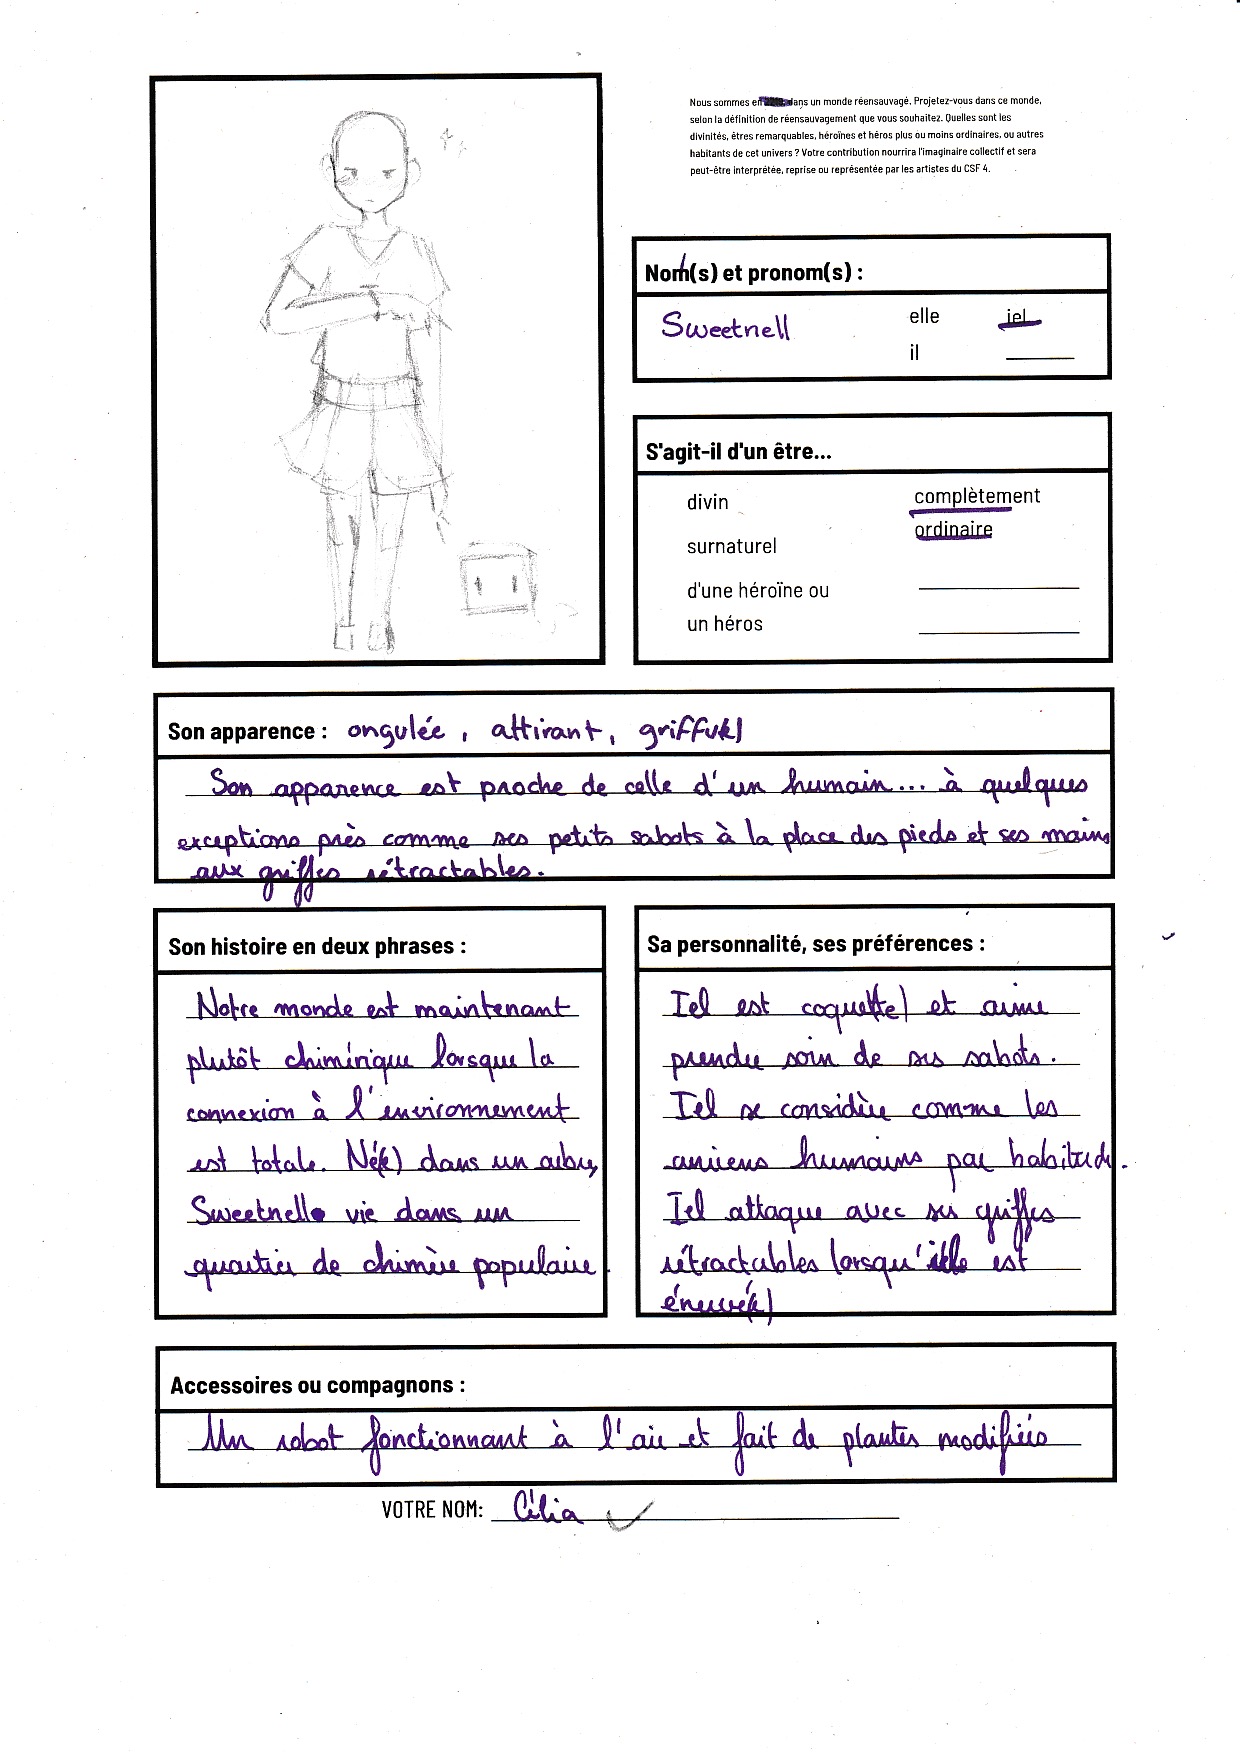 Nous sommes en dans un monde réensauvagé, Projetez-vous dans ce monde,
selon la définition de réensauvagement que vous souhaitez. Quelles sont les
divinités, êtres remarquables, héroïnes et héros plus ou moins ordinaires, ou autres
habitants de cet univers ? Votre contribution nourrira l'imaginaire collectif et sera
peut-être interprétée, reprise ou représentée par les artistes du CSF 4.
Nom(s) et pronom(s) :
Sweetnell
elle iel
il
S'agit-il d'un être...
divin
surnaturel
d'une héroïne ou
un héros
complètement
ordinaire
Son apparence : ongulée, attirant,
Son apparence est proche de celle d'un humain... à quelques
exceptions près comme ses petits sabots à la place des pieds et ses mains
aux griffes rétractables.
Son histoire en deux phrases :
Notre monde est maintenant
plutôt chimérique lorsque la
connexion à l'environnement
est totale. Né(e) dans un arbre,
Sweetnell vie dans un
quartier de chimère populaire.
Sa personnalité, ses préférences :
Iel est coquet(te) et aime
prendre soin de ses sabots.
Iel se considère comme les
anciens humains par habitude.
Iel attaque avec ses griffes
rétractables est
énervé(e)
Accessoires ou compagnons :
Un robot fonctionnant à l'air et fait de plantes modifiées
VOTRE NOM: Célia